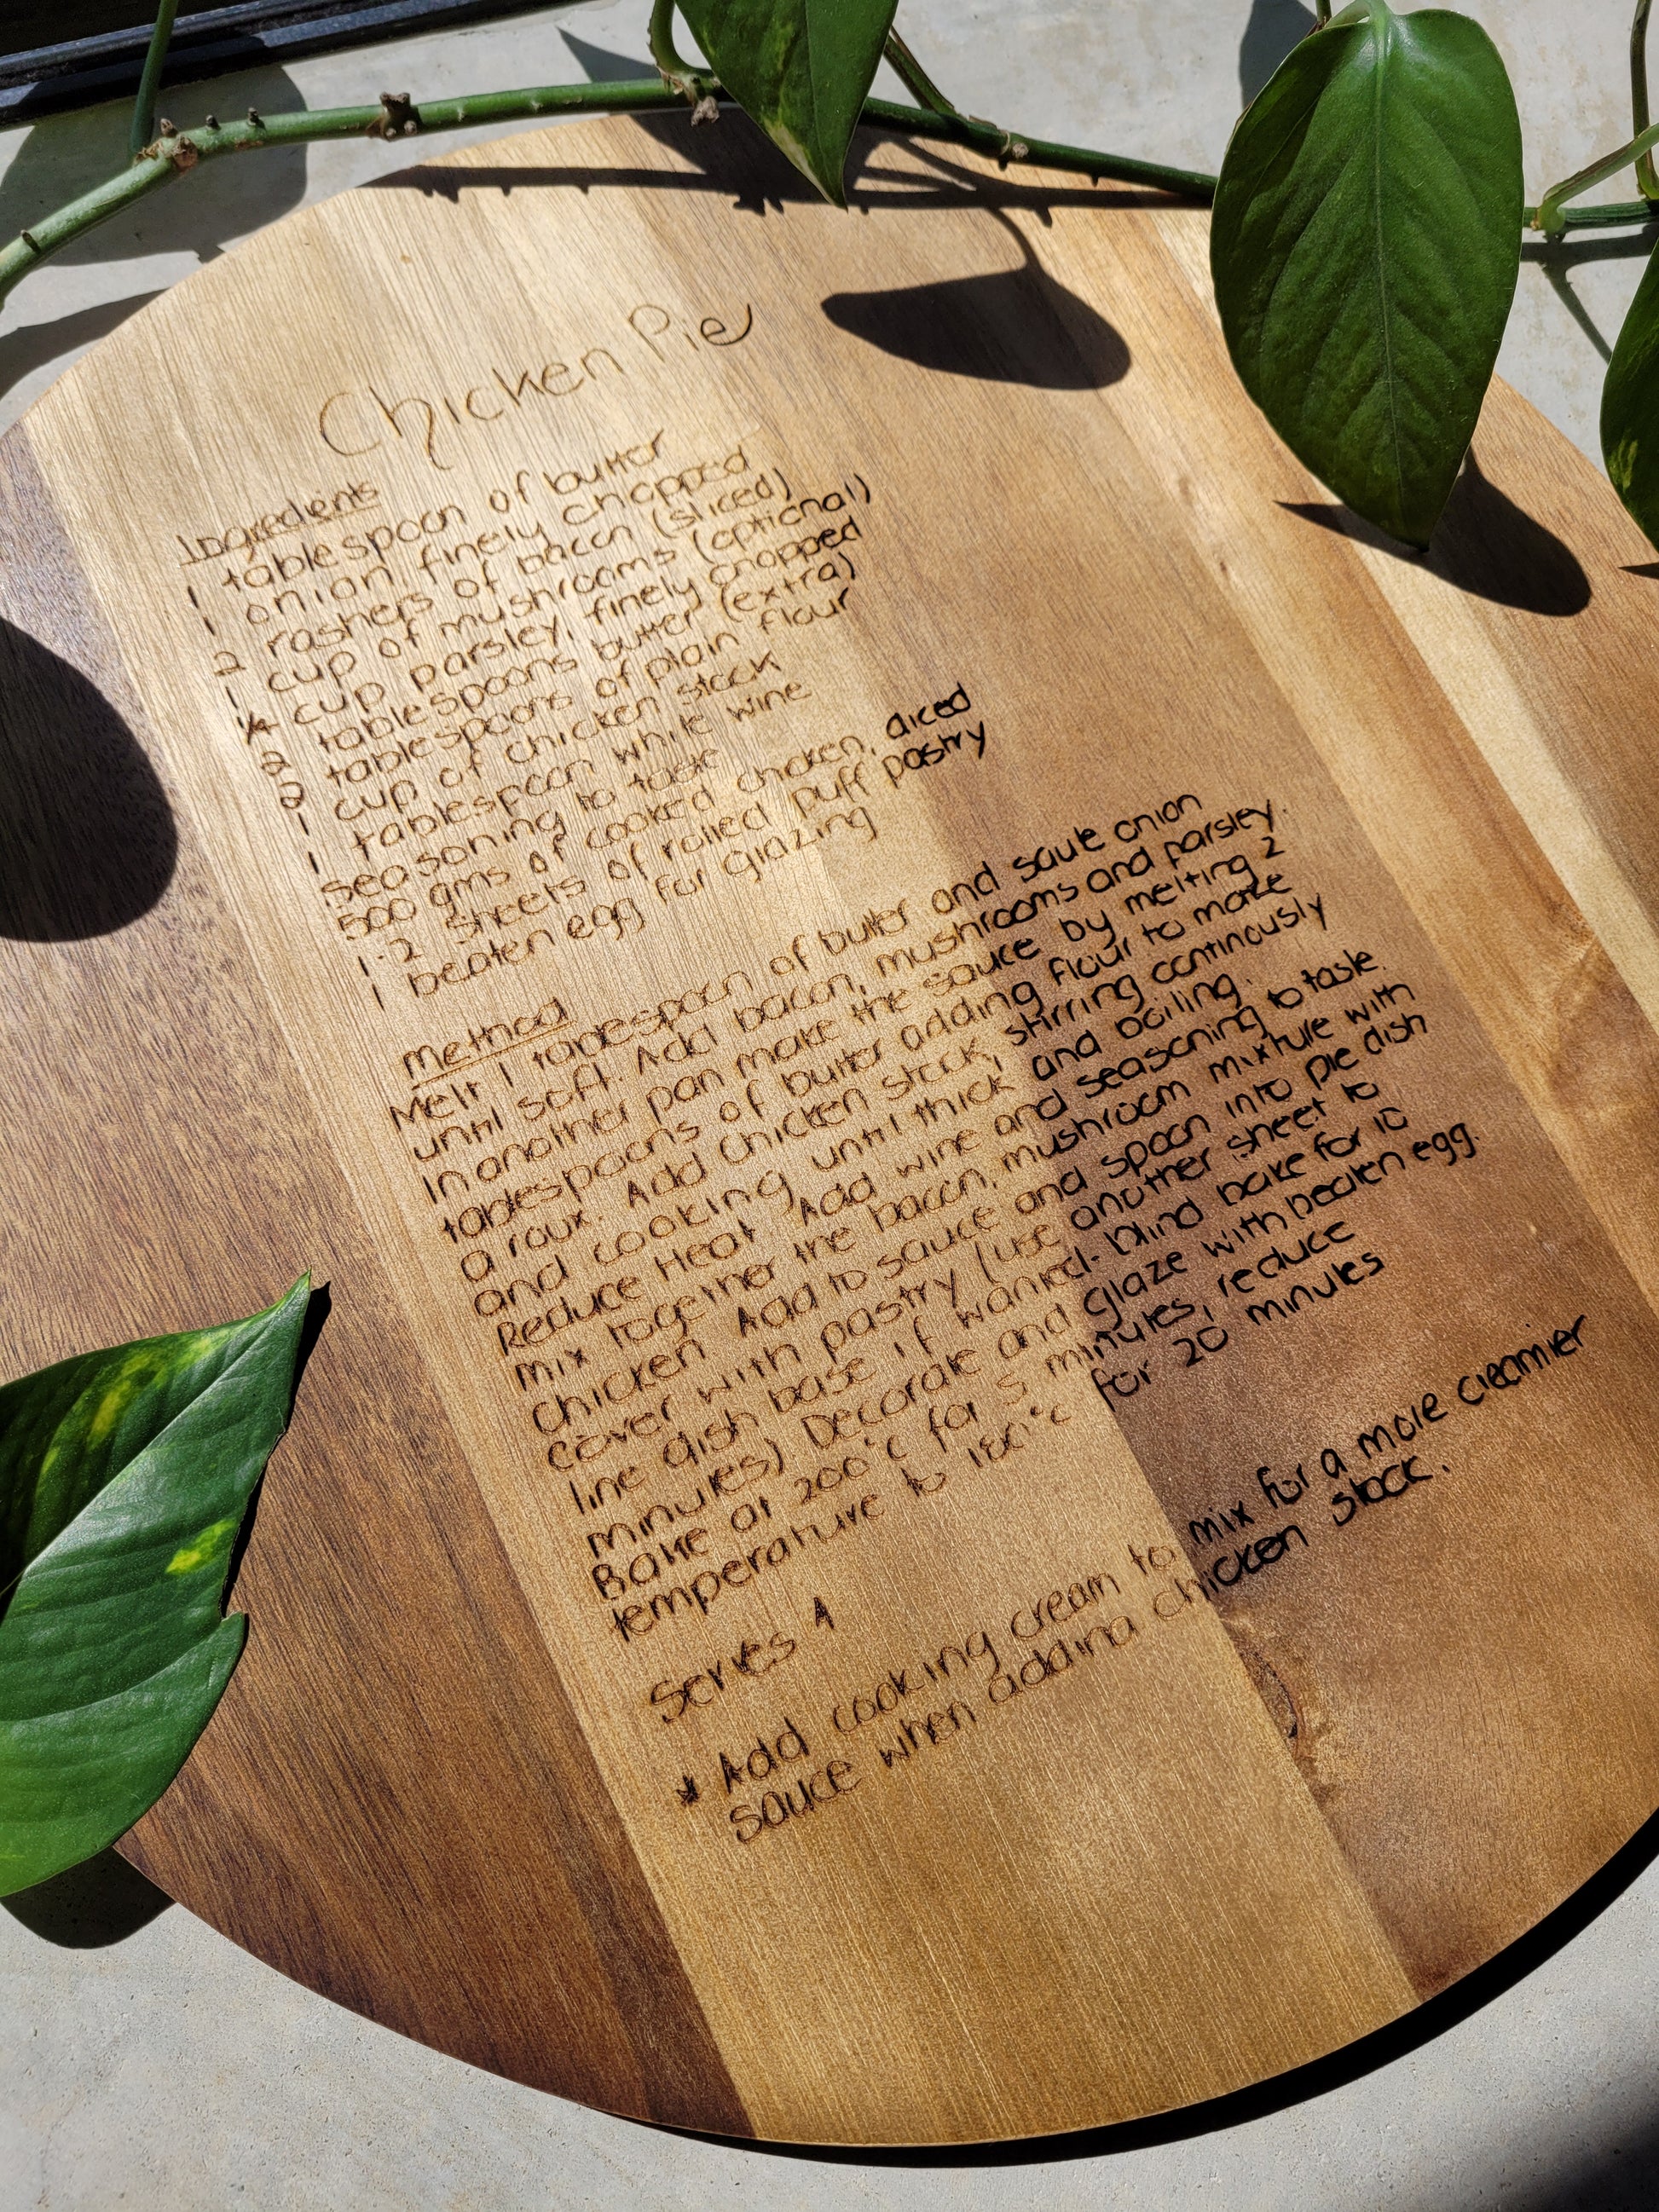 Chicken Pie
Ingredients
1 tablespoon of butter
1 onion, finely chopped
2 rashers of bacon (sliced)
1 cup of mushrooms (optional)
1/4 cup parsley, finely chopped
2 tablespoons butter (extra)
2 tablespoons of plain flour
1 cup of chicken stock
1 tablespoon white wine
seasoning to taste
500 gms of cooked chicken, diced
1-2 sheets of rolled puff pastry
1 beaten egg for glazing
Method
Melt 1 tablespoon of butter and saute onion
until soft. Add bacon, mushrooms and parsley.
In another pan make the sauce by melting 2
tablespoons of butter adding flour to make
a roux. Add chicken stock, stirring continously
and cooking until thick and boiling.
Reduce Heat. Add wine and seasoning to taste.
Mix together the bacon, mushroom mixture with
chicken. Add to sauce and spoon into pie dish
cover with pastry (use another sheet to
line dish base if wanted- blind bake for 10
minutes) Decorate and glaze with beaten egg.
Bake at 200°c for 5 minutes, reduce
temperature to 180°c for 20 minutes
Serves 4
* Add cooking cream to mix for a more creamier
sauce when adding chicken stock.